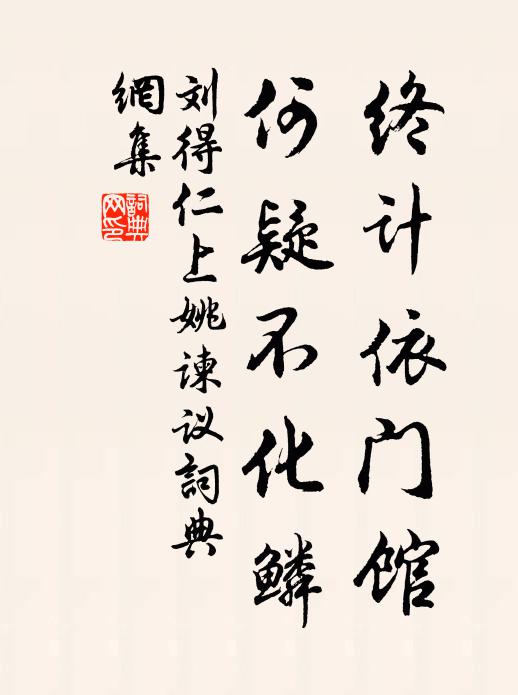 终计依门馆
何疑不化鳞
刘得仁上姚谏议词典
網集
詞典
网印